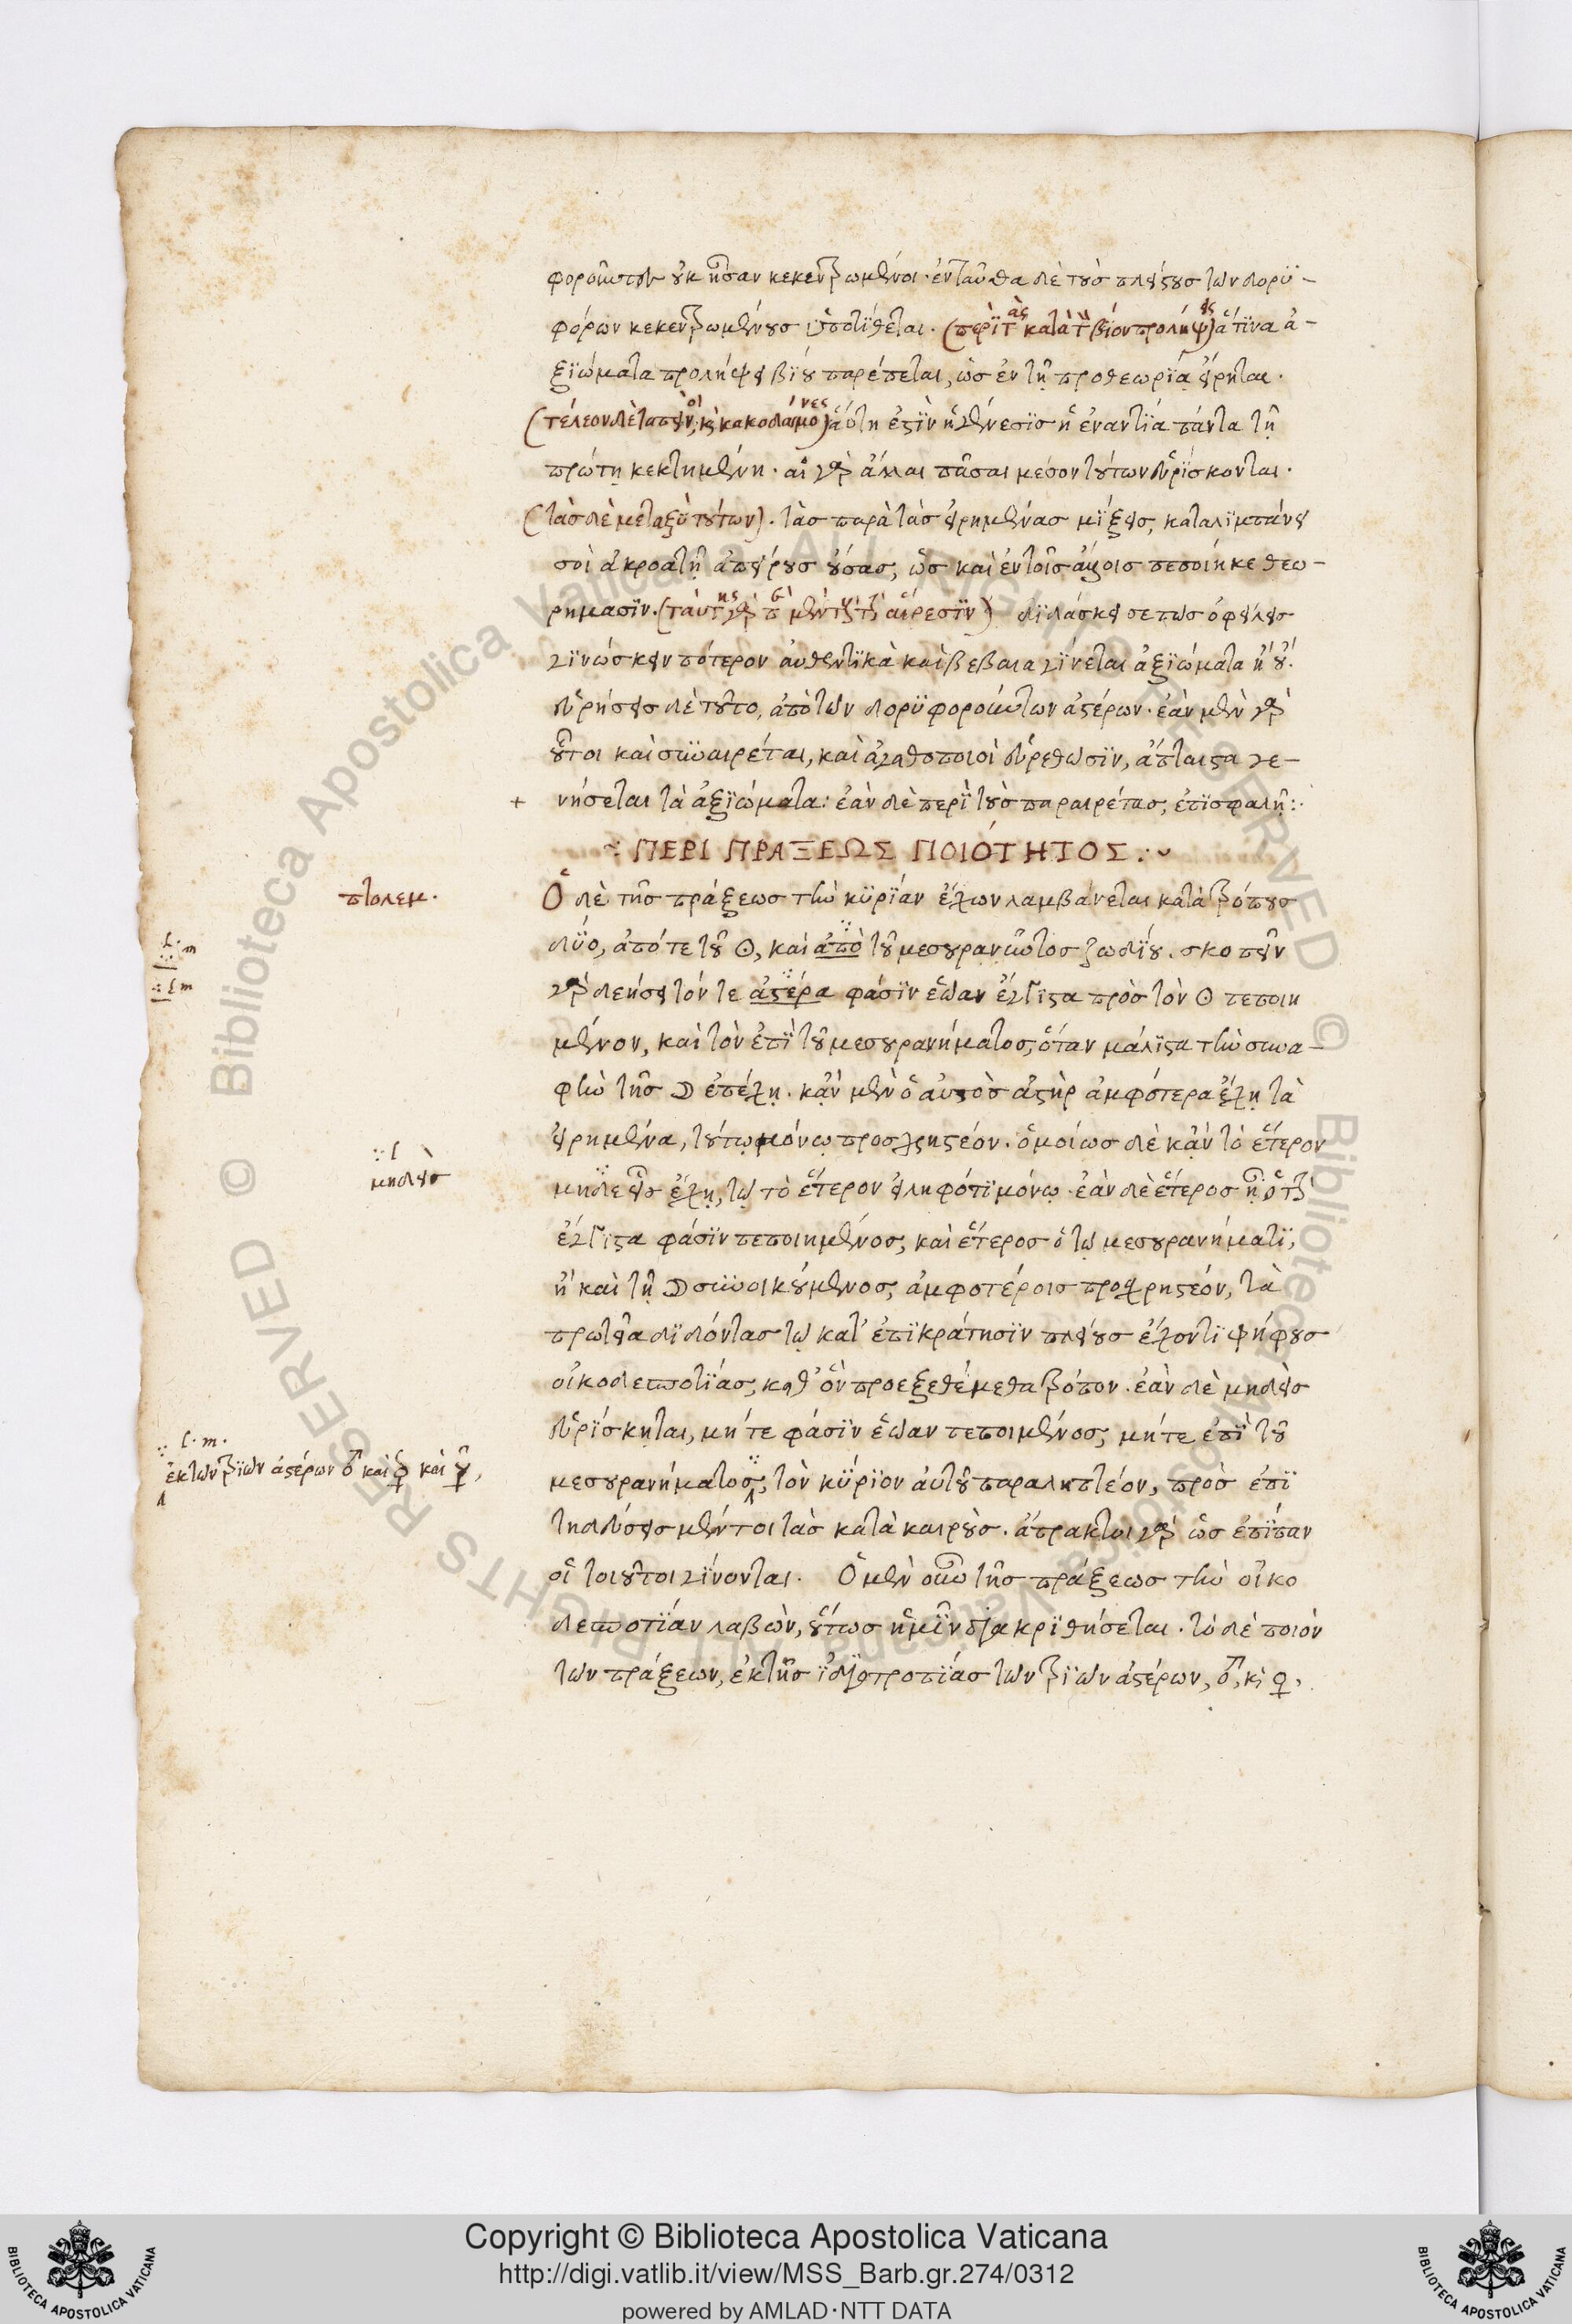 φορούντων οὐκ ἦσαν κεκεντρωμένοι· ἐνταῦθα δὲ τοὺσ πλείστουσ τῶν δορϋ-
φόρων κεκεντρωμένουσ ὑποτίθεται. (περῒ τὰς κατὰ τὸν βίον προλήψεις) ἅτϊνα ἀ-
ξϊώματα προλήψει βϊου παρέπεται, ὡσ ἐν τῆ προθεωρϊα εἴρηται.
(τέλεον δὲ ταπεινοὶ, κ κακοδαίμονες) αὕτη ἐστῒν ἡ γένεσϊσ ἡ ἐναντϊα πάντα τῆ
πρώτη κεκτημένη. αἱ γὰρ ἄλλαι πᾶσαι μέσον τούτων εὑρϊσκονται.
(τὰσ δὲ μεταξὺ τούτων). τὰσ παρὰ τὰσ εἰρημένασ μϊξεισ, καταλϊμπάνει
σοὶ ἀκροατῆ ἀπείρουσ οὔσασ, ὡσ καὶ ἐν τοῖσ ἄλλοισ πεποίηκε θεω-
ρημασϊν. (ταύτης γὰρ αἵρεσϊν) δϊδάσκει σε πωσ ὀφείλεισ
γϊνώσκειν πότερον αὐθεντϊκὰ καὶ βεβαια γϊνεται ἀξϊώματα ἢ οὔ.
εὑρήσεισ δὲ τοῦτο, ἀπὸ τῶν δορϋφορούντων ἀστέρων. ἐὰν μὲν γὰρ
οὗτοι καὶ συναιρέται, καὶ ἀγαθοποιοὶ εὑρεθωσϊν, ἄπταιστα γε-
+ νήσεται τὰ ἀξϊώματα: ἐὰν δὲ περῒ τοὺσ παραιρέτασ, ἐπϊσφαλῆ:
ΠΕΡΙ ΠΡΑΞΕΩΣ ΠΟΙΌΤΗΤΟΣ
πτολεμ.
Ὁ δὲ τῆσ πράξεωσ τὴν κϋρϊαν ἔχων λαμβάνεται κατὰ τρόπουσ
δϋο, ἀπό τε τοῦ ☉, καὶ ἀπὸ τοῦ μεσουρανοῦντοσ ζωδϊου. σκοπεῖν
γὰρ δεήσει τόν τε ἀστέρα φάσϊν ἑῴαν ἔγγϊστα πρὸσ τὸν ☉ πεποιη
μένον, καὶ τὸν ἐπῒ τοῦ μεσουρανήματοσ, ὅταν μάλϊστα τὴν συνα-
φὴν τῆσ ☽ ἐπέχη. κἂν μὲν ὁ αὐτὸσ ἀστὴρ ἀμφότερα ἔχη τὰ
εἰρημένα, τούτω μόνω προσχρηστέον. ὁμοίωσ δὲ κἂν τὸ ἕτερον
μηδὲισ
μηδεῖσ ἔχη, τῶ τὸ ἕτερον εἰληφότϊ μόνω. ἐὰν δὲ ἕτεροσ ἦ ὁ τὴν
ἔγγϊστα φάσϊν πεποιημένοσ, καὶ ἕτεροσ ὁ τῶ μεσουρανήματϊ,
ἢ καὶ τῆ ☽ συνοικούμενοσ, ἀμφοτέροισ προσχρηστέον, τὰ
πρωτεῖα δϊδόντασ τῶ κατ' ἐπϊκράτησϊν πλείουσ ἔχοντϊ ψήφουσ
οἰκοδεσποτϊασ, καθ' ὃν προεξεθέμεθα τρόπον. ἐὰν δὲ μηδὲισ
εὑρϊσκηται, μήτε φάσϊν ἑῴαν πεποιμένοσ, μήτε ἐπῒ τοῦ
ἐκ τῶν τρϊῶν ἀστέρων ♂ καὶ ♀ καὶ ☿,
μεσουρανήματοσ, τὸν κϋρϊον αὐτοῦ παραληπτέον, πρὸσ ἐπϊ
τηδεύσεισ μέντοι τὰσ κατὰ καιροὺσ. ἄπρακτοι γὰρ ὡσ ἐπϊπαν
οἱ τοιοῦτοι γϊνονται. Ὁ μὲν οὖν τῆσ πράξεωσ τὴν οἰκο
δεσποτϊαν λαβὼν, οὕτωσ ἡμῖν διακρϊθήσεται. τὸ δὲ ποιὸν
τῶν πράξεων, ἐκ τῆσ ϊδϊοτροπϊασ τῶν τρϊῶν ἀστέρων, ♂, κ ♀,
Copyright © Biblioteca Apostolica Vaticana
http://digi.vatlib.it/view/MSS_Barb.gr.274/0312
powered by AMLAD·NTT DATA